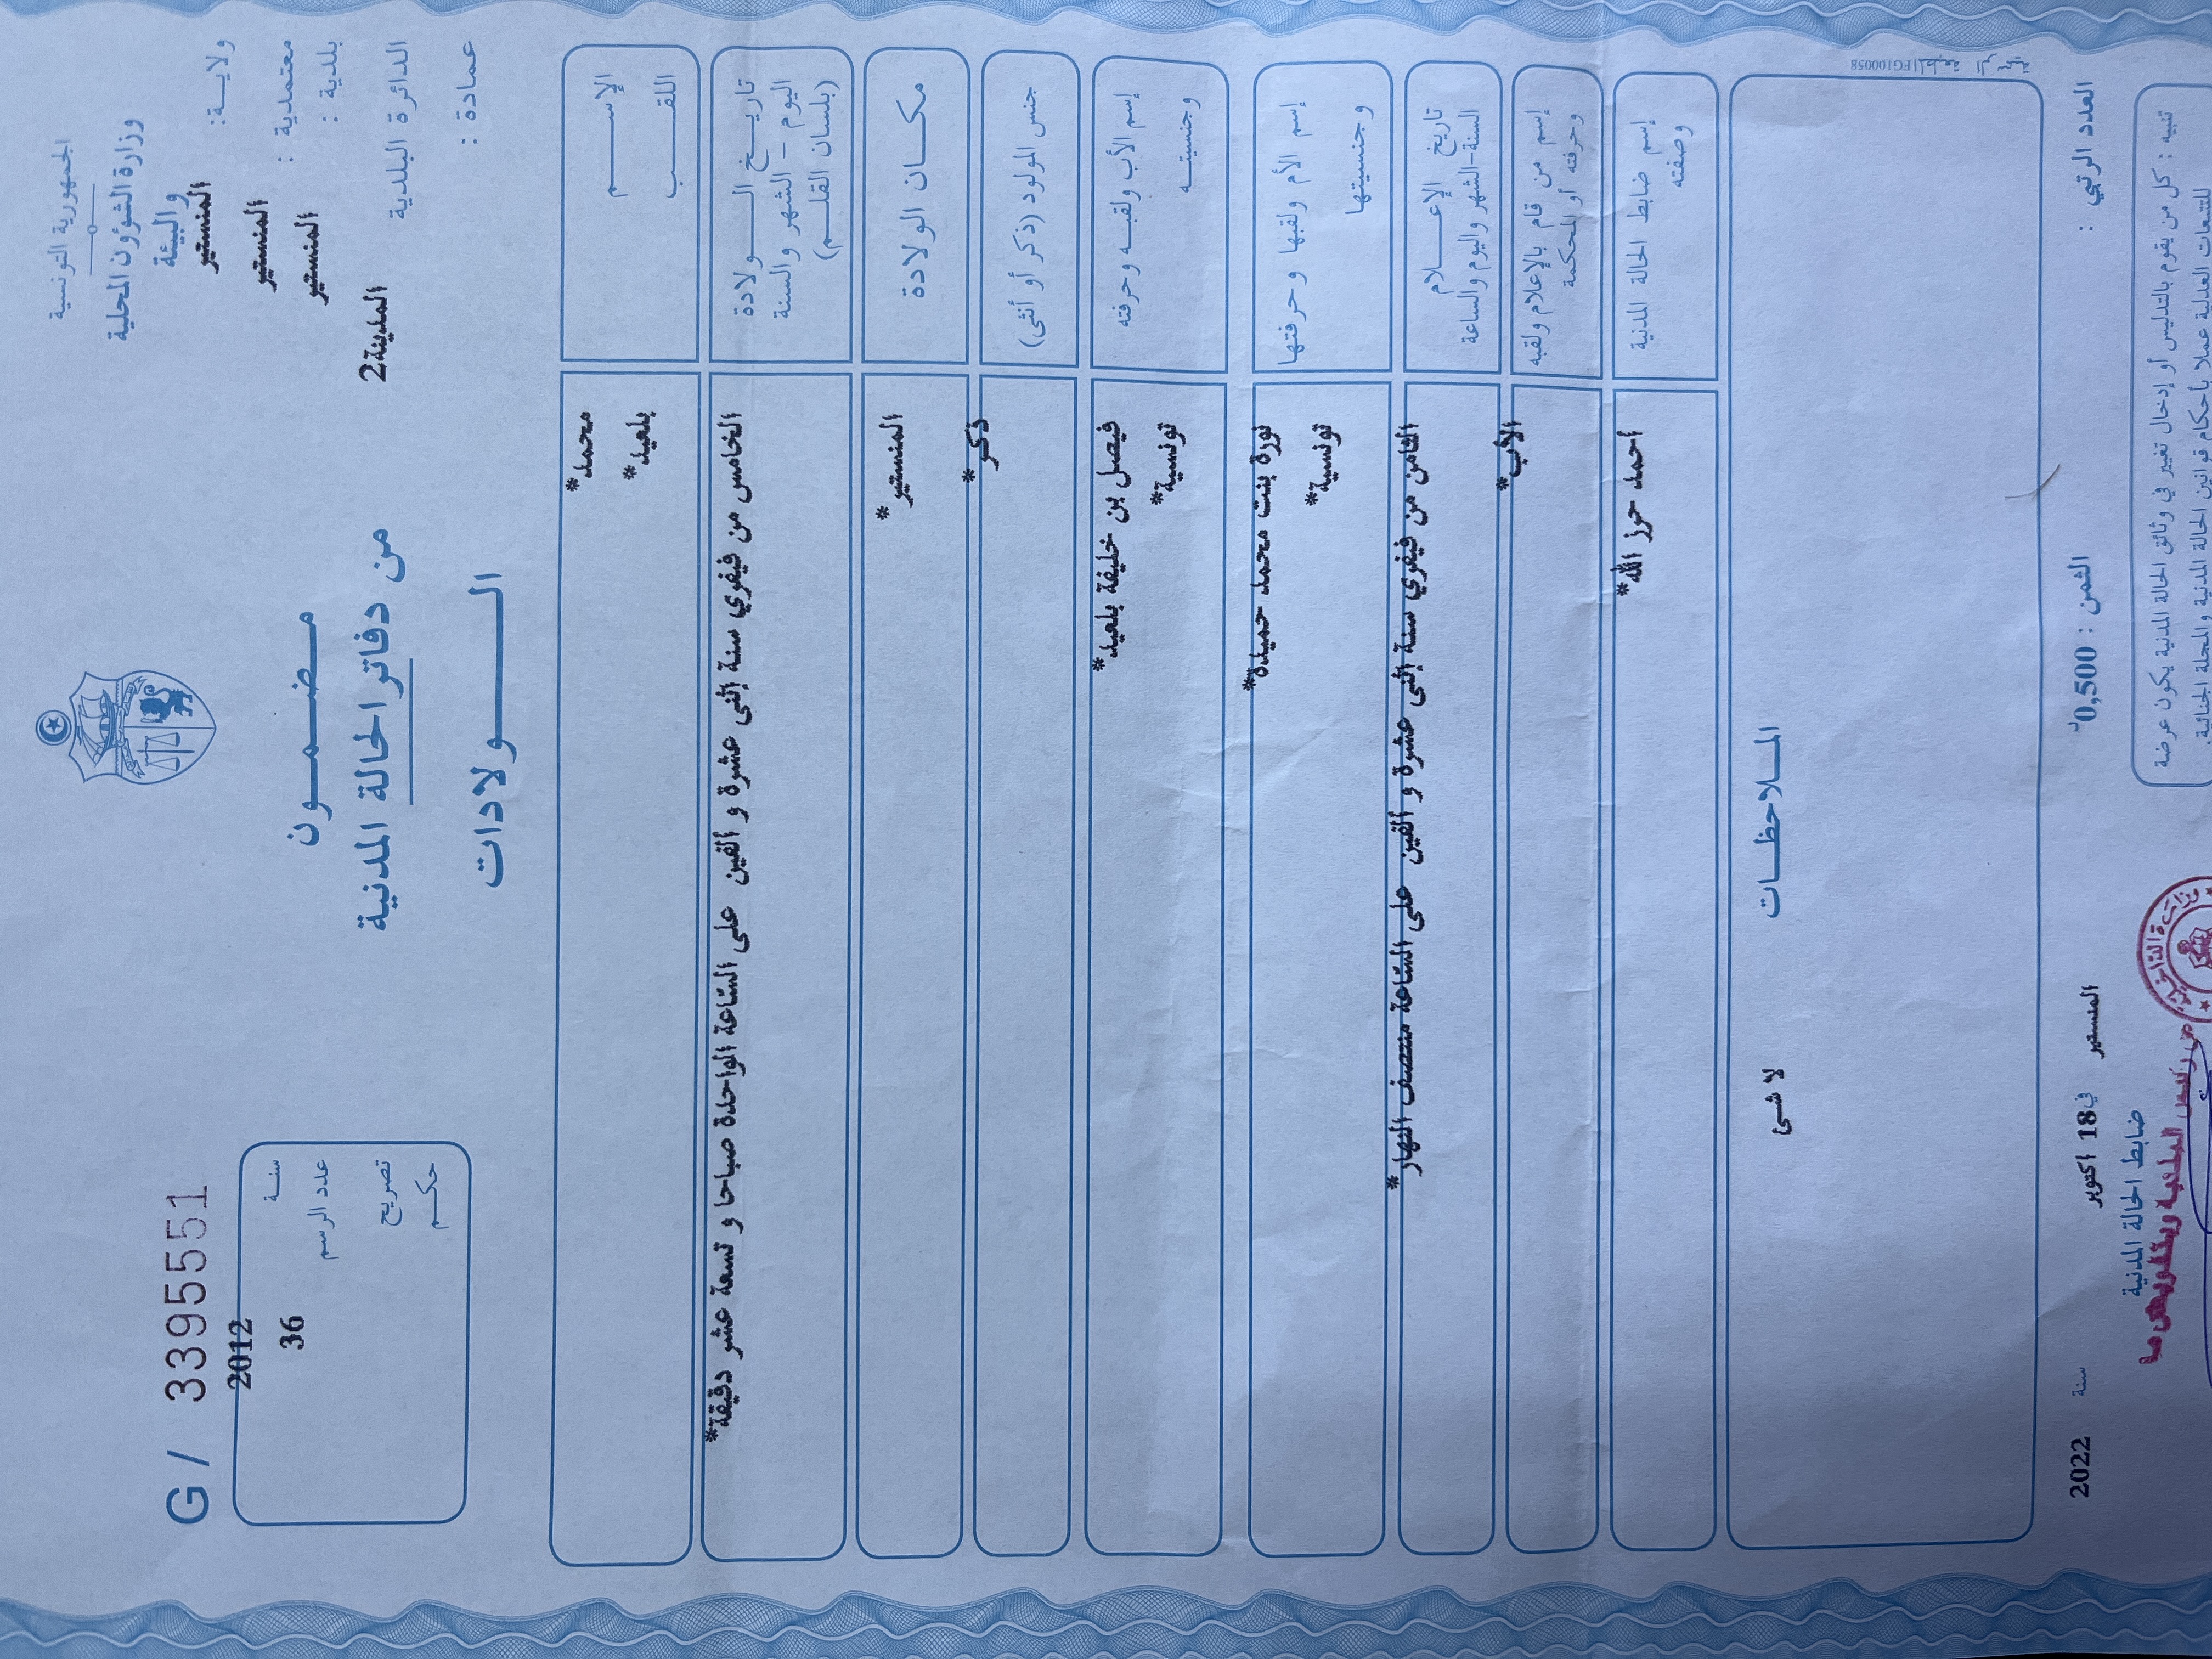 الجمهورية التونسية
وزارة الشؤون المحلية
والبيئة
ولايـــة: المنستير
معتمدية : المنستير
بلدية : المنستير
الدائرة البلدية المدينة2
عمادة :
G / 3395551
سنـــة 2012
عدد الرسم 36
تصريح
حكـــم
مـــضـــمـــون
من دفاتر الحالة المدنية
الـــــولادات
الإســـــم محمد*
اللقـــــب بلعيد*
تاريـــخ الـــــولادة
اليوم - الشهر والسنة
(بلسان القلـــم)
الخامس من فيفري سنة إثنى عشرة و ألفين على السّاعة الواحدة صباحا و تسعة عشر دقيقة*
مكـــان الولادة المنستير*
جنس المولود (ذكر أو أنثى) ذكر*
إسم الأب ولقبـــه وحرفته فيصل بن خليفة بلعيد*
وجنسيتـــه تونسية*
إسم الأم ولقبها وحرفتها نورة بنت محمد حميدة*
وجنسيتها تونسية*
تاريخ الإعـــــلام
السنة-الشهر واليوم والساعة
الثامن من فيفري سنة إثنى عشرة و ألفين على السّاعة منتصف النهار*
إسم من قام بالإعلام ولقبه
وحرفته أو المحكمة
الأب*
إسم ضابط الحالة المدنية
وصفته
أحمد حرز الله*
المـــلاحظـــات
لا شئ
FG100058
العدد الرتبي :
الثمن : 0,500د
المنستير في 18 اكتوبر سنة 2022
ضابط الحالة المدنية
تنبيه : كل من يقوم بالتدليس أو إدخال تغيير في وثائق الحالة المدنية يكون عرضة
للتتبعات العدلية عملا بأحكام قوانين الحالة المدنية والمجلة الجنائية.